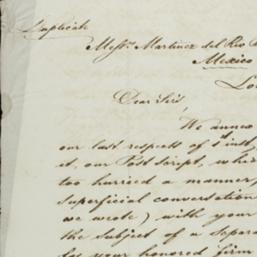 Duplicate
Messrs. Martinez del Rio
Mexico
Lo
Dear Sirs,
We annex
our last respects of 1st inst
et. our Post Script, whi
too hurried a manner,
superficial conversation
we wrote) with your
the subject of a separ
for your honored firm